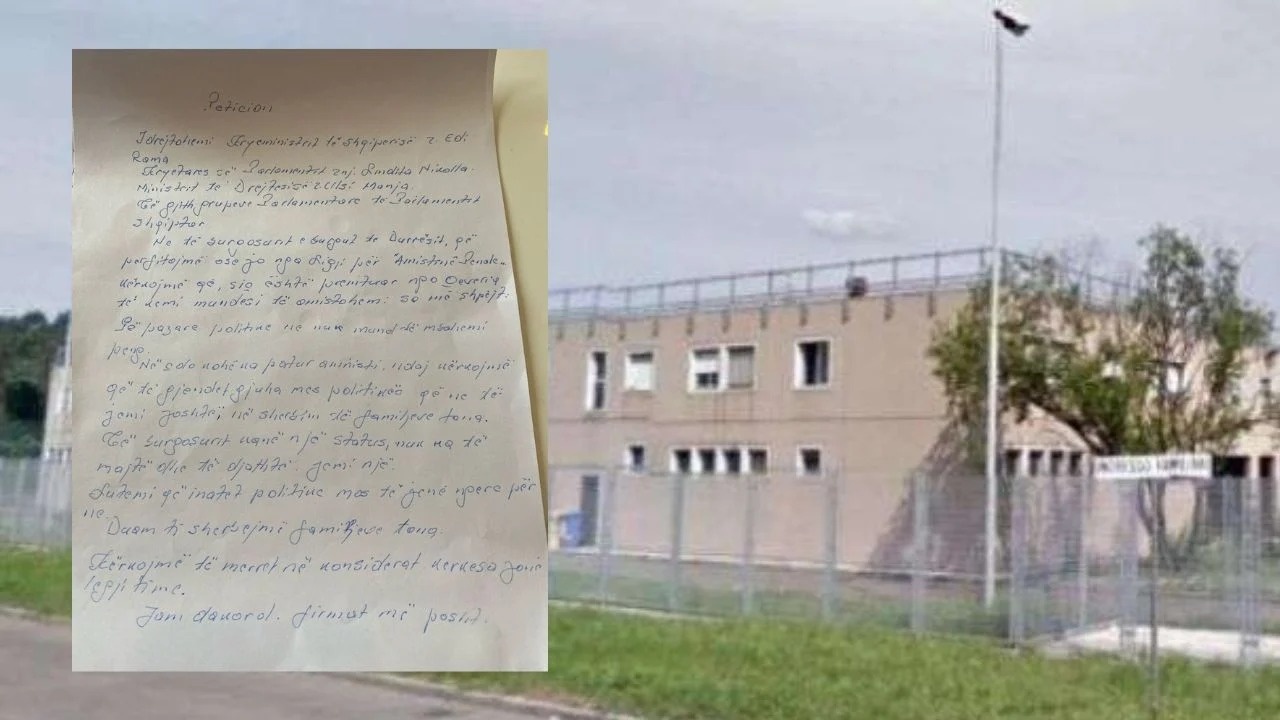 Peticion
Idrejtohemi Kryeministrit të shqiperisë z. Edi
Rama
Kryetares së Parlamentit znj. Lindita Nikolla.
Ministrit të Drejtesisë z Ulsi Manja.
Të gjith grupeve Parlamentare të Parlamentit
shqiptar
Ne të burgosurit e burgut të Durrësit, që
perfitojmë ose jo nga ligji për "Amistinë Penale"
kërkojmë që, siç është premtuar nga Qeveria
të kemi mundesi të amistohemi sa më shpejt.
Për pazare politike ne nuk mund të mbahemi
peng.
Në çdo kohë ka patur amnisti, ndaj kërkojmë
që të gjendet gjuha mes politikës që ne të
jemi jashtë, në sherbim të familjeve tona.
Të burgosurit kanë një status, nuk ka të
majtë dhe të djathtë. Jemi një.
Lutemi që inatet politike mos të jenë ngera për
ne.
Duam ti sherbejmë familjeve tona.
Kërkojmë të merret në konsiderat kerkesa jonë
legjitime.
Jam dakord. firmat më poshtë.
INGRESSO FAMILIARI